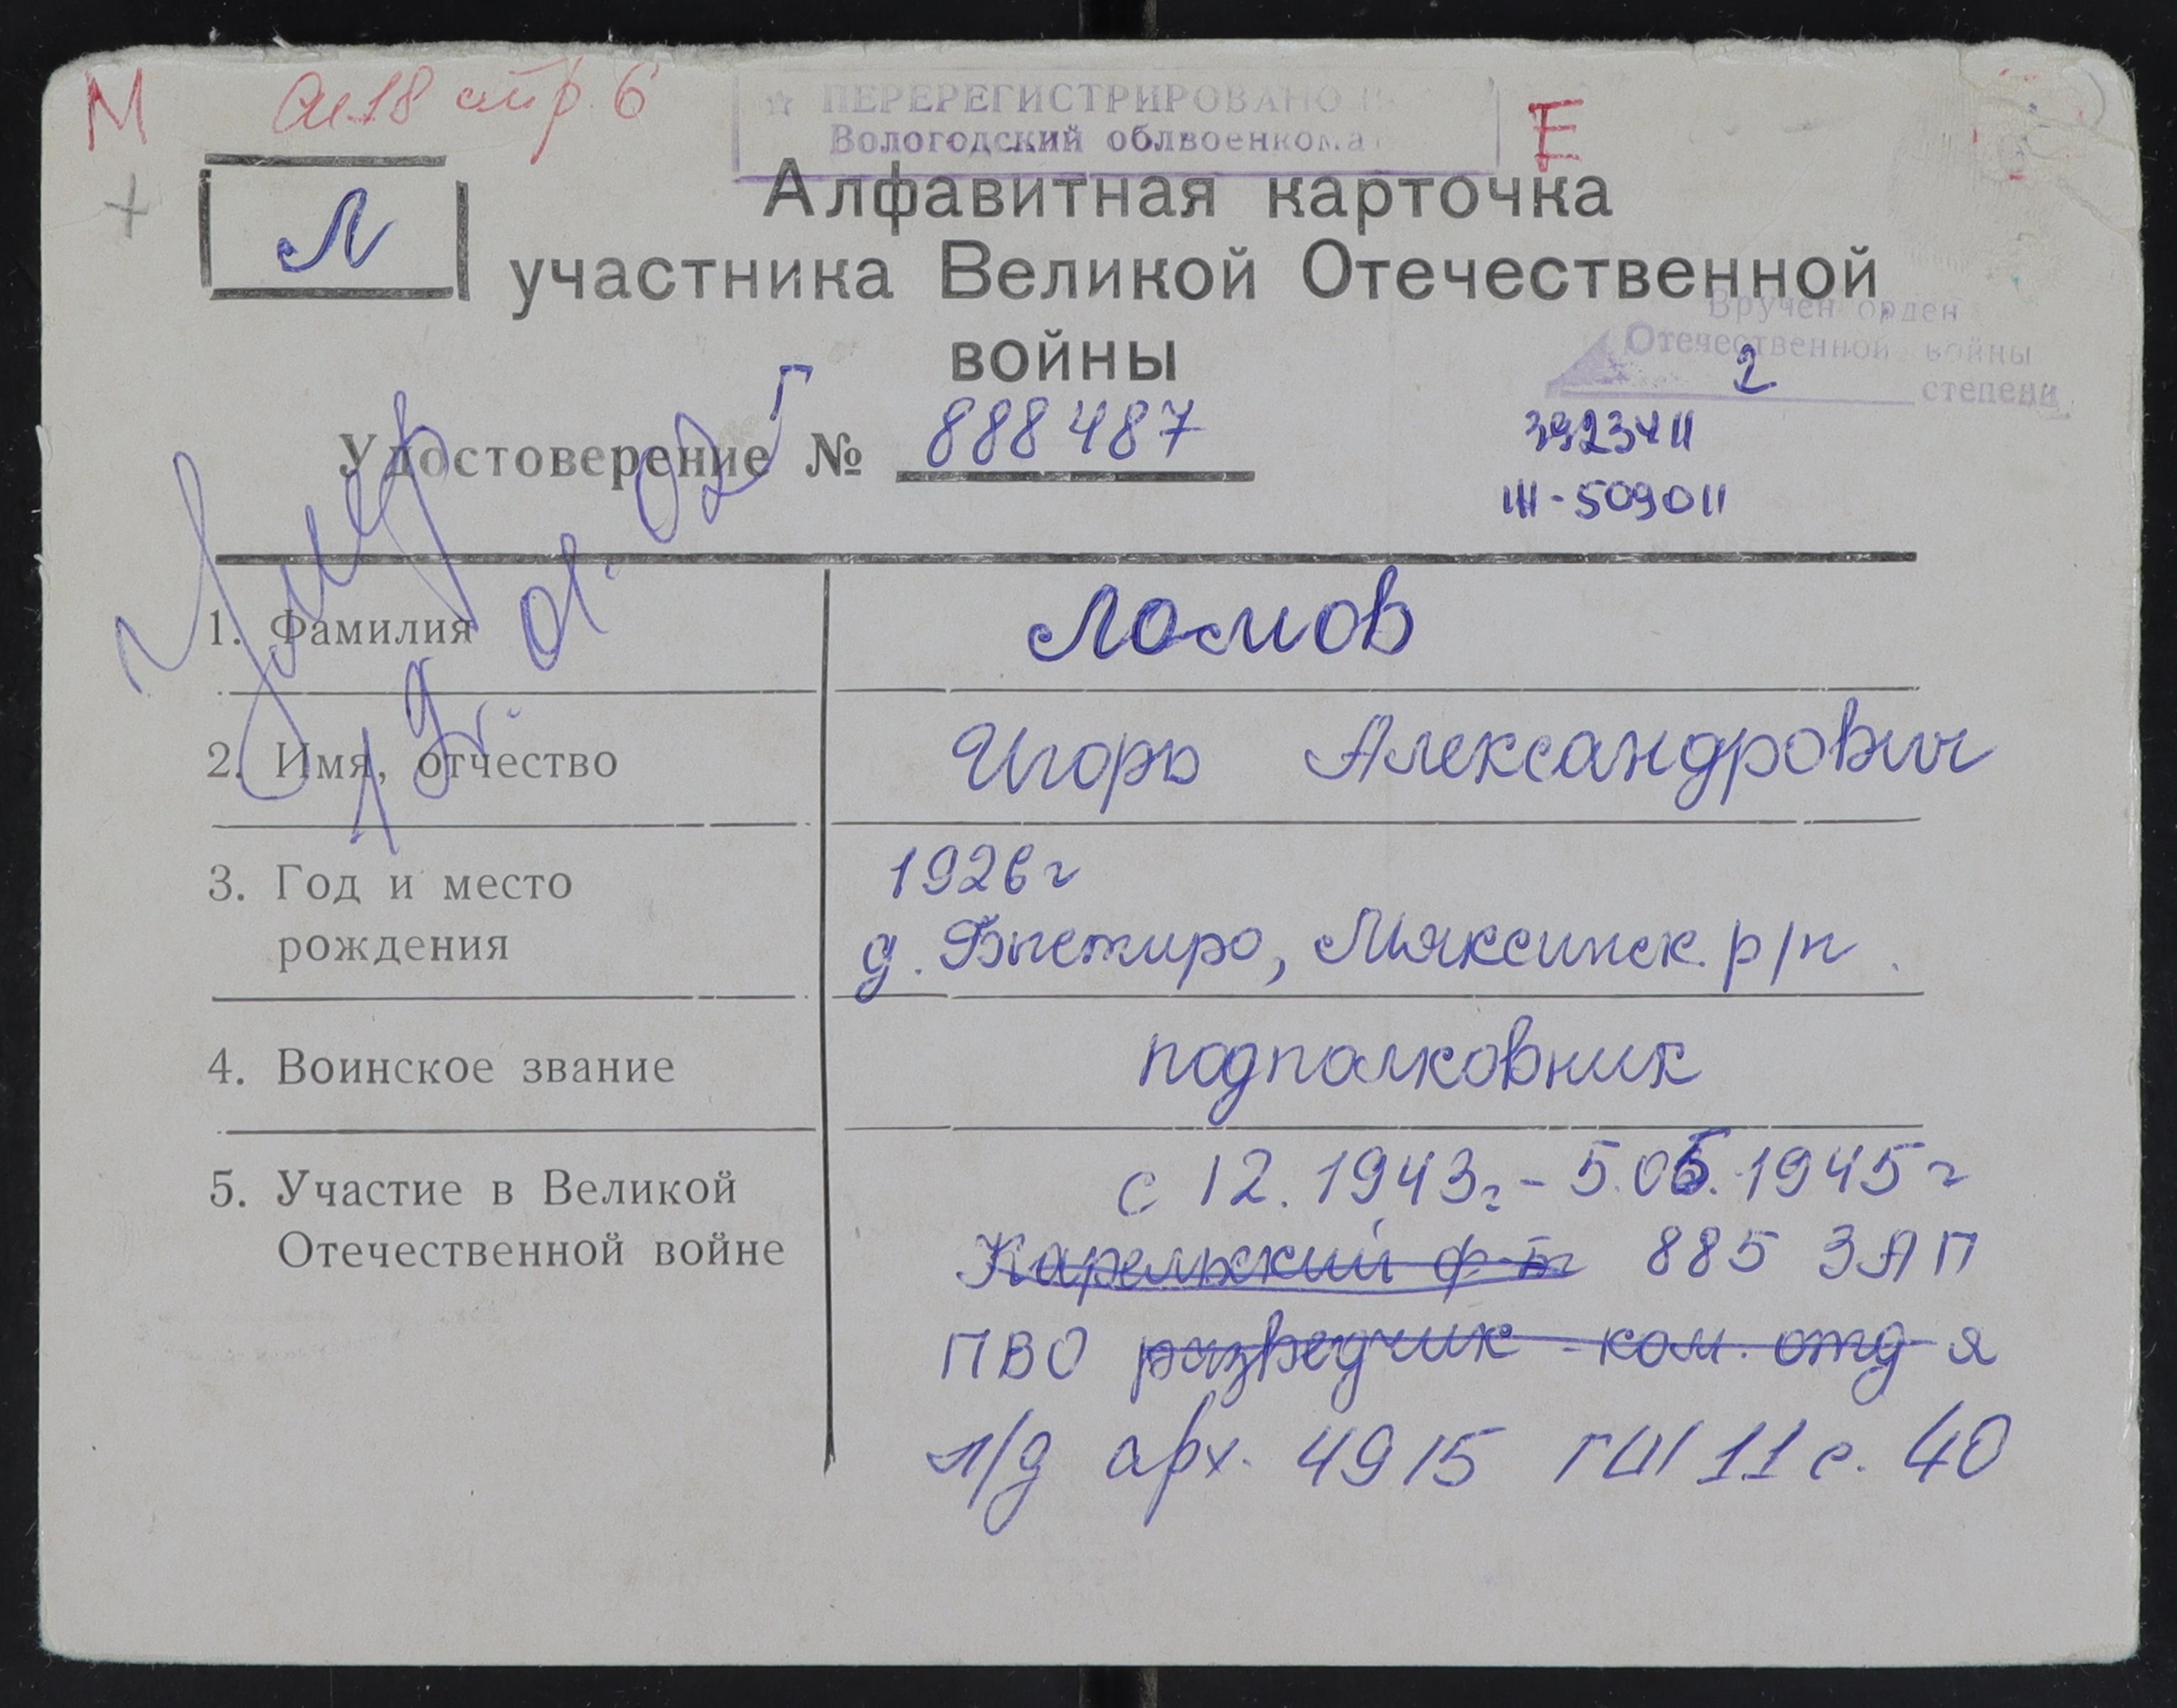 М Ал.18 стр. 6
☆ ПЕРЕРЕГИСТРИРОВАНО
Вологодский облвоенкомат
Е
Л
Алфавитная карточка
участника Великой Отечественной
войны
Вручен орден
Отечественной войны
2 степени
Удостоверение № 888487
3923411
Ш-509011
Умер
19. 01. 025
1. Фамилия Ломов
2. Имя, отчество Игорь Александрович
3. Год и место 1926г
рождения д. Быстиро, Мяксинск. р/н.
4. Воинское звание подполковник
5. Участие в Великой с 12.1943г. - 5.05.1945г
Отечественной войне Карельский ф-т 885 ЗАП
ПВО разведчик - ком. отд-я
л/д арх. 4915 ГШ 11 с. 40